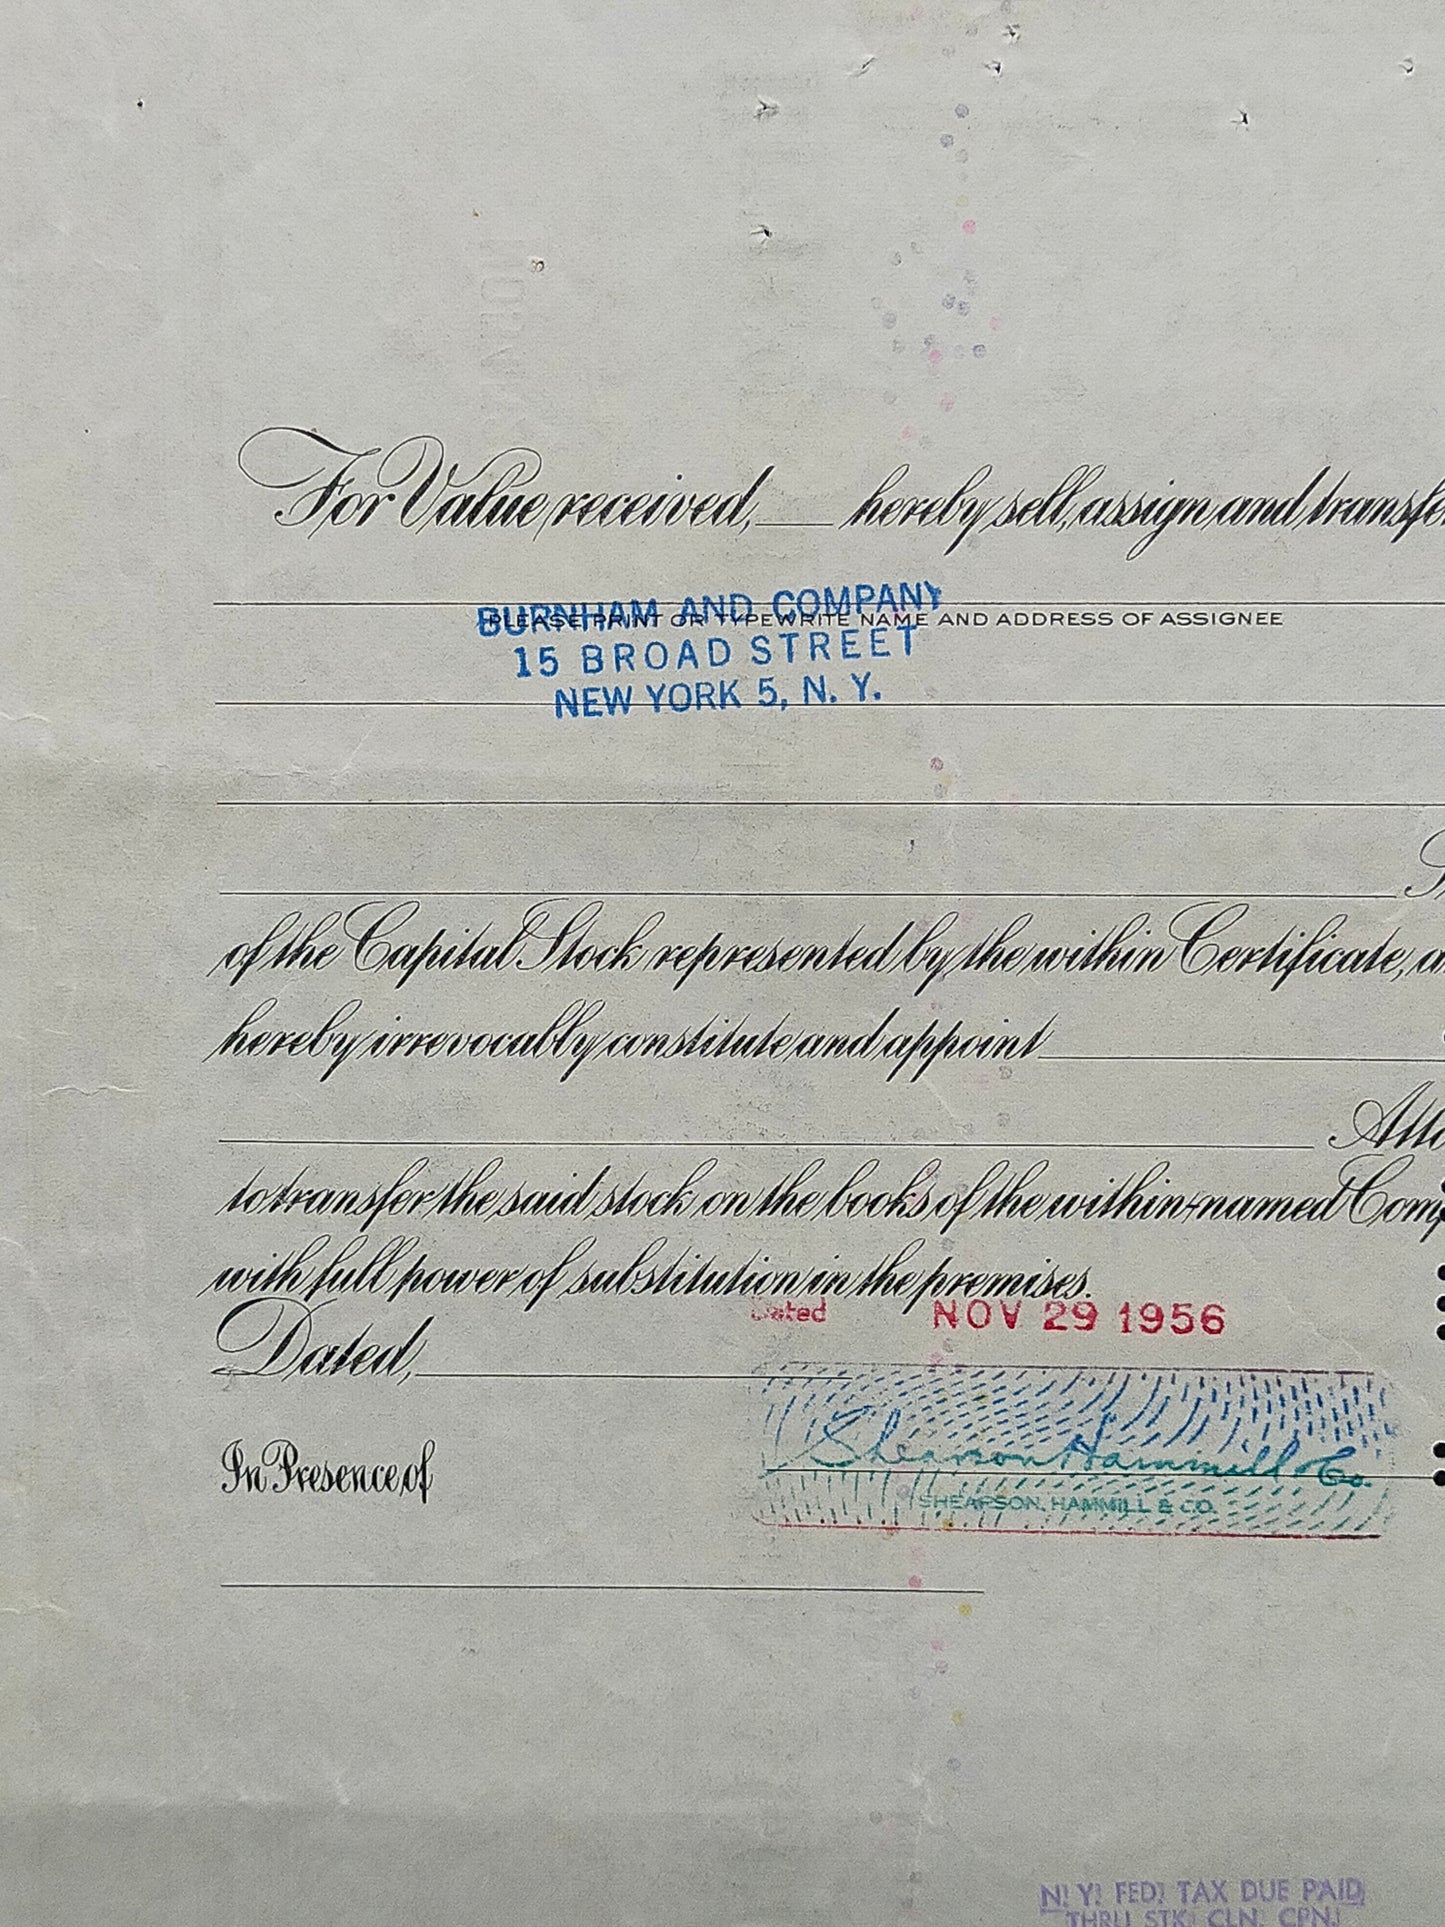 For Value received, ___ hereby sell, assign and transfer
BURNHAM AND COMPANY
PLEASE PRINT OR TYPEWRITE NAME AND ADDRESS OF ASSIGNEE
15 BROAD STREET
NEW YORK 5, N. Y.
of the Capital Stock represented by the within Certificate, a
hereby irrevocably constitute and appoint
Atto
to transfer the said stock on the books of the within-named Comp
with full power of substitution in the premises.
Dated NOV 29 1956
Dated,
Shearson Hammill & Co.
In Presence of
SHEARSON, HAMMILL & CO.
N! Y! FED! TAX DUE PAID
THRU STK! CLN! CPN!